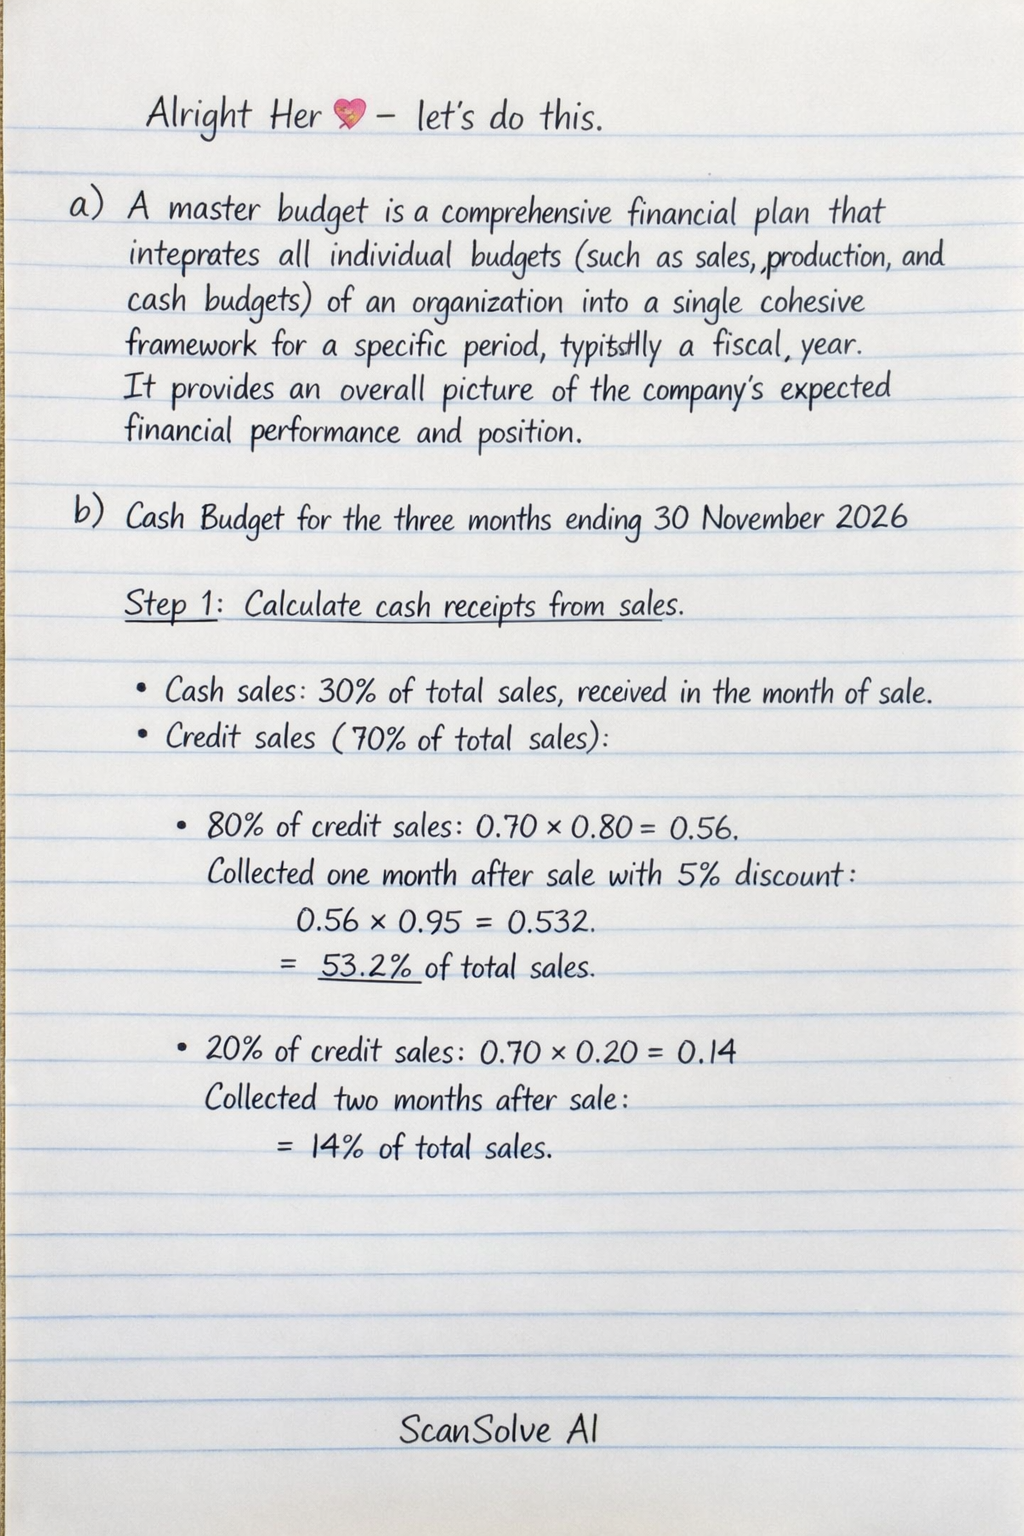 Alright Her 💘 – let's do this.
a) A master budget is a comprehensive financial plan that
inteprates all individual budgets (such as sales, production, and
cash budgets) of an organization into a single cohesive
framework for a specific period, a fiscal, year.
It provides an overall picture of the company's expected
financial performance and position.
b) Cash Budget for the three months ending 30 November 2026
Step 1: Calculate cash receipts from sales.
• Cash sales: 30% of total sales, received in the month of sale.
• Credit sales (70% of total sales):
• 80% of credit sales: 0.70 × 0.80 = 0.56.
Collected one month after sale with 5% discount:
0.56 × 0.95 = 0.532.
= 53.2% of total sales.
• 20% of credit sales: 0.70 × 0.20 = 0.14
Collected two months after sale:
= 14% of total sales.
ScanSolve AI